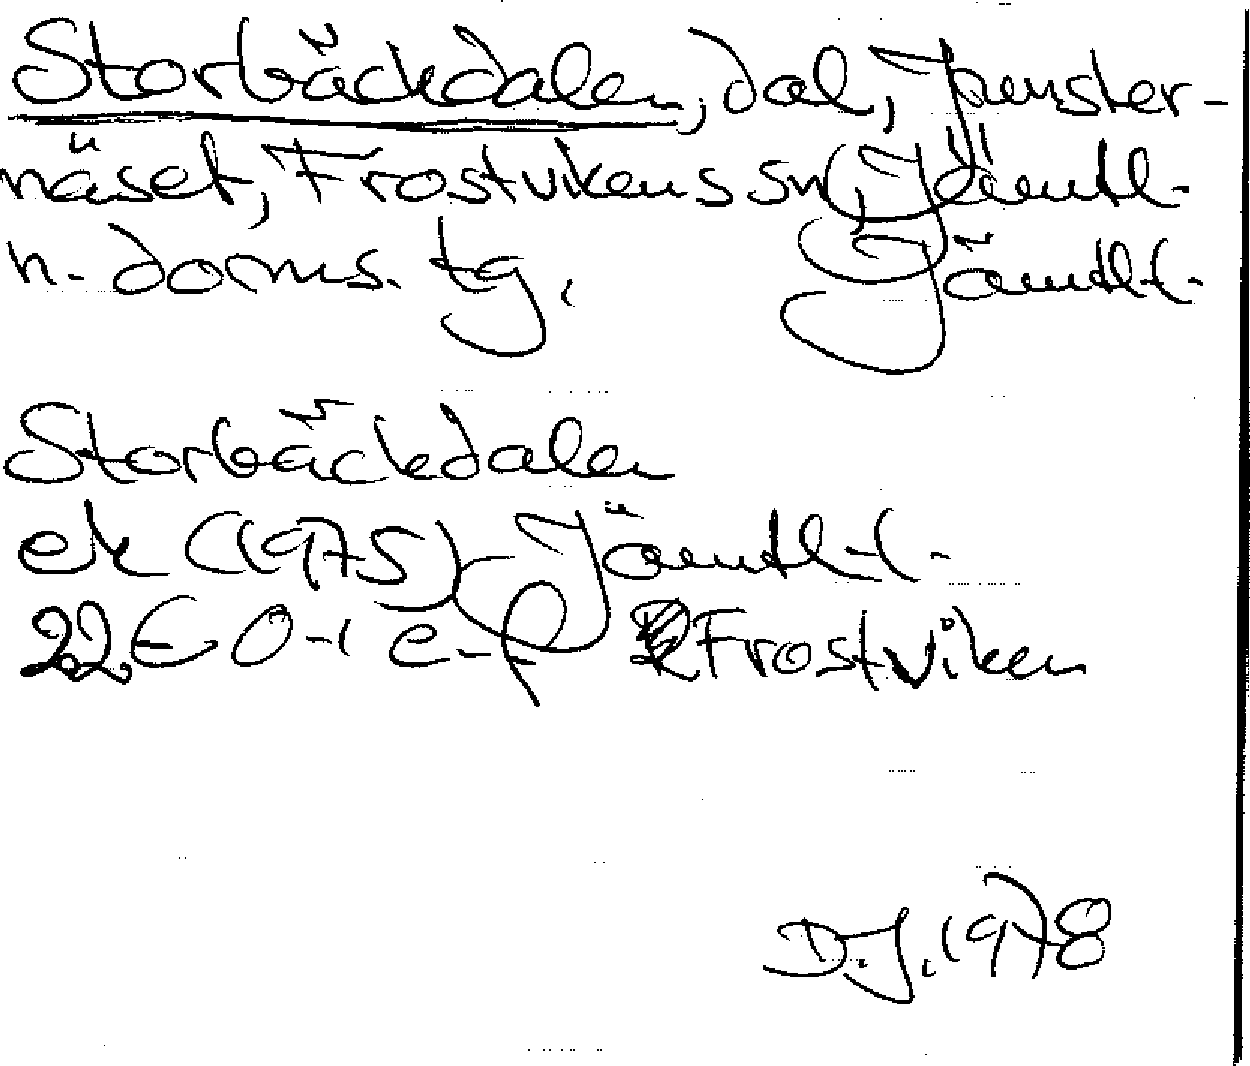 Storbäckdalen, dal, Junster-
näset, Frostvikens sn, Jämtl.
n. doms. tg. Jämtl. l.
Storbäckdalen
ek (1975) Jämtl. l.
22E 0-1 e-f Frostviken
D.J. 1978